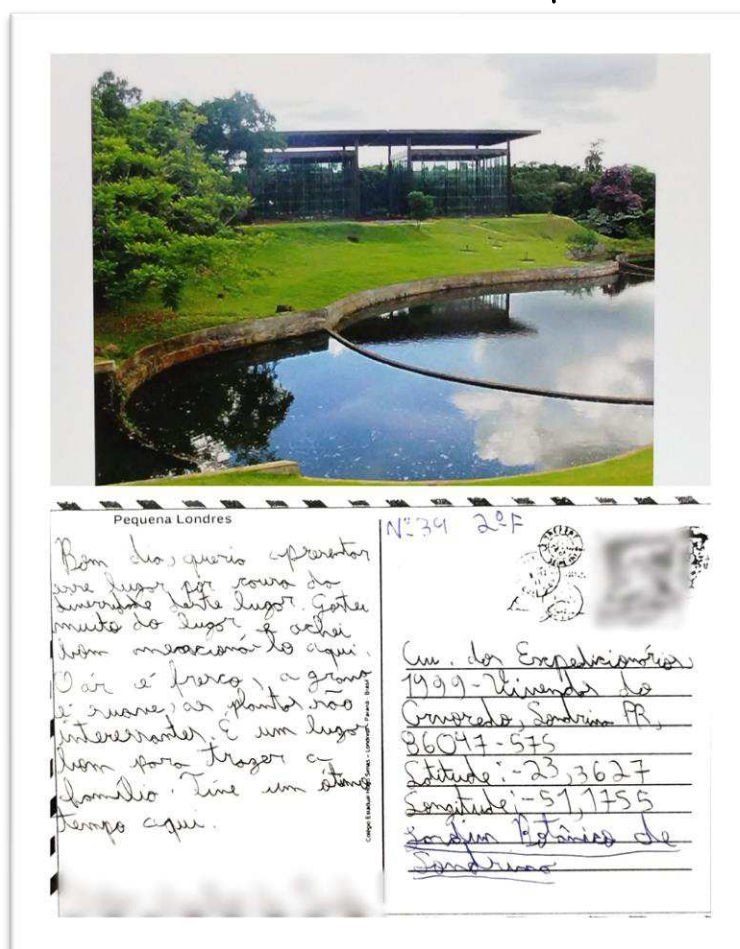 Pequena Londres
Bom dia, queria apresentar
esse lugar por causa da
diversidade deste lugar. Gostei
muito do lugar e achei
bom mencioná-lo aqui.
O ar é fresco, a grama
é suave, as plantas são
interessantes. É um lugar
bom para trazer a
família. Tive um ótimo
tempo aqui.
Nº 39 2º F
Av. dos Expedicionários,
1999 - Vivendas do
Arvoredo, Londrina PR,
86047-575
Latitude: -23,3627
Longitude: -51,1755
Jardim Botânico de
Londrina